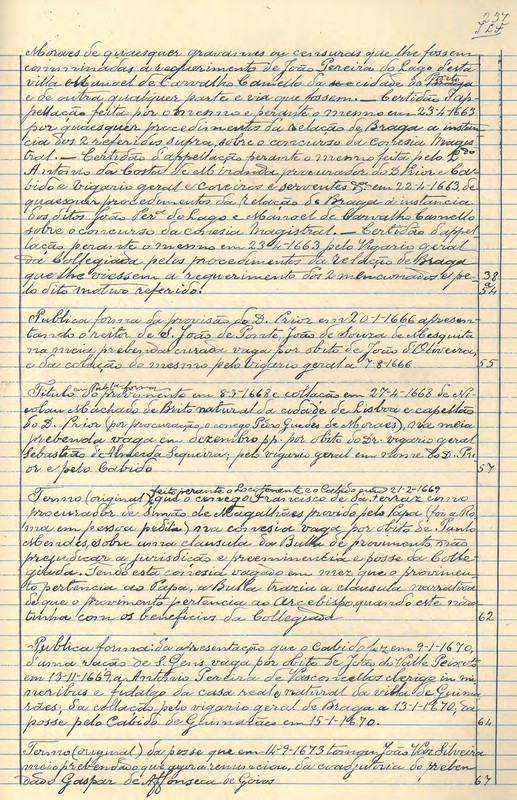 237
Moraes de quaesquer gravames ou censuras que lhe fossem
comminadas a requerimento de João Pereira do Lago d'esta
villa e Manoel de Carvalho Camello da cidade do Porto
e de outra qualquer parte e via que fossem. — Certidão d'ap-
pellação feita por o mesmo e perante o mesmo em 23-4-1663
por quaesquer procedimentos da relação de Braga a instan-
cia dos 2 referidos supra, sobre o concurso da conesia Magis-
tral. — Certidão d'appellação perante o mesmo feita pelo
Antonio da Costa de Miranda procurador do D. Prior e Ca-
bido e vigario geral e coreiros e serventes &c em 22-4-1663, de
quaesquer procedimentos da relação de Braga a instancia
dos ditos João Per.ª do Lago e Manoel de Carvalho Camello
sobre o concurso da conesia magistral. — Certidão d'appel
lação perante o mesmo em 23-4-1663 pelo Vigario geral
da Collegiada, pelos procedimentos da relação de Braga
que lhe viessem a requerimento dos 2 mencionados e pe- 38
lo dito motivo referido. a 54
Publica forma da provisão do D. Prior em 20-1-1666 apresen-
tando o reitor de S. João de Ponte, João de Souza de Mesquita
na meia prebenda curada vaga por obito de João d'Oliveira,
e da collação do mesmo pelo vigario geral a 7-8-1666 55
Titulo em publica forma do provimento em 8-3-1668 e collação em 27-4-1668 de Ni-
colau Machado de Brito natural da cidade de Lisboa e capellão
do D. Prior (por procuração o conego Pero Guedes de Moraes), na meia
prebenda vaga em dezembro pp. por obito do Dr. vigario geral
Sebastião de Almeida Sequeira; pelo vigario geral em nome do D. Pri-
or e pelo Cabido 57
Termo (original) feito perante o Loco tenente e o Cabido em 21-2-1669 que o conego Francisco de Sá Ferraz como
procurador de Simão de Magalhães provido pelo Papa (foi a Ro-
ma em pessoa pedil-a) na conesia vaga por obito de Paulo
Mendes, sobre uma clausula da Bulla de provimento não
prejudicar a jurisdicção e preeminencia e posse da Colle-
giada. Tendo esta conesia vagado em mez que o provimen-
to pertencia ao Papa, a Bulla trazia a clausula narrativa
de que o provimento pertencia ao Arcebispo quando este não
tinha com os beneficios da Collegiada 62
Publica forma: da apresentação que o Cabido fez em 9-1-1670,
d'uma ração de S. Gens vaga por obito de João do Valle Peixoto
em 13-11-1669, a Antonio Pereira de Vasconcellos clerigo in mi-
noribus e fidalgo da casa real e natural da villa de Guima-
rães; da collação pelo vigario geral de Braga a 13-1-1670; da
posse pelo Cabido de Guimarães em 15-1-1670. 64
Termo (original) da posse que em 14-9-1673 tomou João Vaz Silveira
meio prebendado que agora renunciou, da coadjutoria do preben-
dado Gaspar de Affonseca de Goios 67